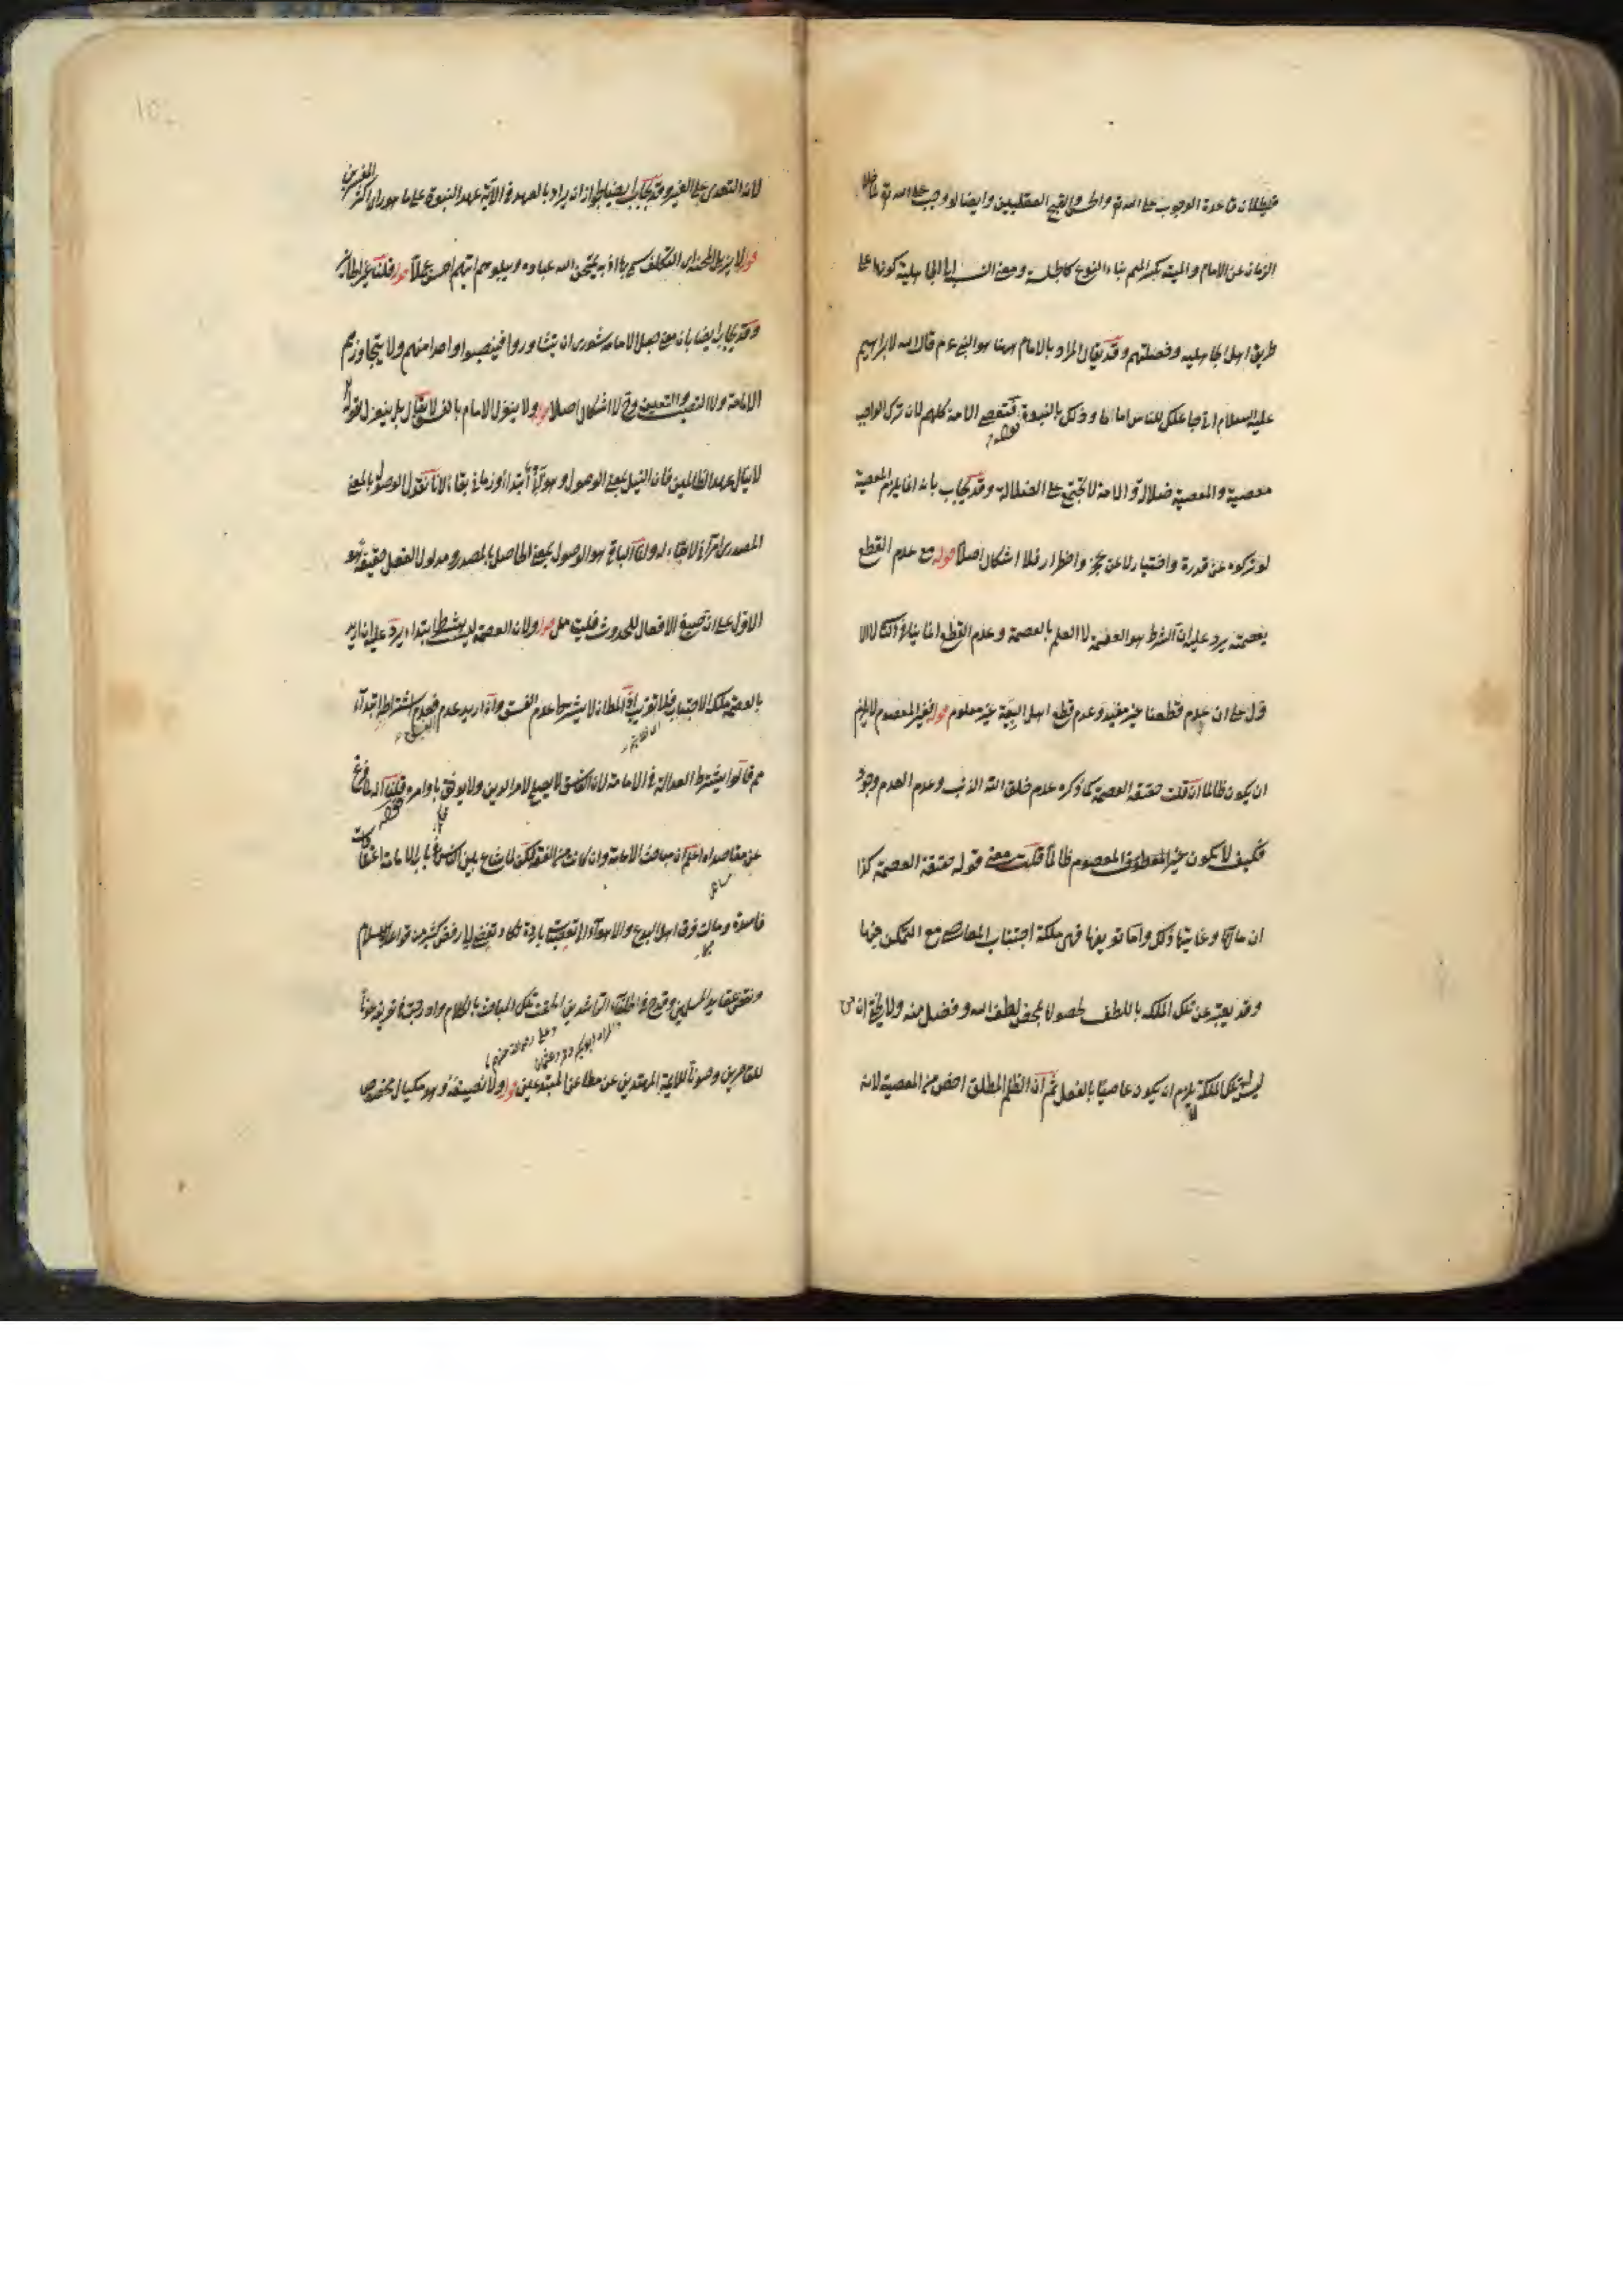 فبطلان قاعدة الوجوب على الله تع والحسن والقبح العقليين وايضا لو وجب على الله تع لما خلا
الزمان عن الامام والميتة بكسر الميم بناء النوع كالجلسة ومعنى النسبة الى الجاهلية كونها على
طريق اهل الجاهلية وخصلتهم وقد يقال المراد بالامام ههنا هو النبي عم قال الله لابراهيم
عليه السلام اني جاعلك للناس اماما وذلك بالنبوة قوله فتعصى الامة كلهم لان ترك الواجب
معصية والمعصية ضلالة والامة لا تجتمع على الضلالة وقد يجاب بانه انما يلزم المعصية
لو تركوه عن قدرة واختيار لا عن عجز واضطرار فلا اشكال اصلا قوله مع عدم القطع
بعصمته يرد عليه ان الشرط هو العصمة لا العلم بالعصمة وعدم القطع انما ينافي ذلك لا الا
ول على ان عدم قطعنا غير مفيد وعدم قطع اهل البيعة غير معلوم قوله فغير المعصوم لا يلزم
ان يكون ظالما ان قلت حقيقة العصمة كما ذكره عدم خلق الله الذنب وعدم العدم وجود
فكيف لا يكون غير المعصوم ظالما قلت معنى قوله حقيقة العصمة كذا
ان مآلها وغايتها ذلك واما تعريفها فهي ملكة اجتناب المعاصي مع التمكن منها
وقد يعبر عن تلك الملكة باللطف لحصولها بمحض لطف الله وفضل منه ولا يخفى ان من
ليس له تلك الملكة لا يلزم ان يكون عاصيا بالفعل ثم ان الظلم المطلق اخص من المعصية لانه
لانه التعدي على الغير وقد يجاب ايضا بجواز ان يراد بالعهد في الآية عهد النبوة على ما هو راى اكثر المفسرين
قوله لا يزيل المحنة اى التكليف سمي بها اذ به يمتحن الله عباده ويبلوهم ايهم احسن عملا قوله قلنا غير
وقد يجاب ايضا بان معنى جعل الامامة شورى ان يتشاوروا فينصبوا واحدا منهم ولا يتجاوزهم
الامامة ولا النصب والتعيين وح لا اشكال اصلا قوله ولا ينعزل الامام بالفسق لا يقال بل ينعزل لقوله تع
لا ينال عهدي الظالمين فان النيل بمعنى الوصول وهو آنى ابتداء وزماني بقاء لانا نقول الوصول بالمعنى
المصدرى امر آنى لا بقاء له وانما الباقي هو الوصول بمعنى الحاصل بالمصدر ومدلول الفعل حقيقة هو
الاول على ان صيغ الافعال للحدوث فليتأمل قوله ولان العصمة ليست بشرط ابتداء يرد عليه ان اريد
بالعصمة ملكة الاجتناب فلا تقريب اذ المطلوب ان لا يشترط عدم الفسق وان اريد عدم الفسق فعدم اشتراطه ابتداء
مم قالوا يشترط العدالة في الامامة لان الفاسق لا يصلح لامر الدين ولا يوثق باوامره قوله قلنا انه لما فرغ
عن مقاصده اه اعلم ان مباحث الامامة وان كانت من الفقه لكن لما شاع بين الناس في باب الامامة اعتقادات
فاسدة ومالت فرق اهل البدع والاهواء الى تعصبات باردة تكاد تفضي الى رفض كثير من قواعد الاسلام
ونقض عقايد المسلمين وقدح في الخلفاء الراشدين الحقت تلك المباحث بالكلام وادرجت في تعريفه عونا
والمراد ابو بكر وعمر وعثمان وعلي رضي الله عنهم
للقاصرين وصونا للائمة المهتدين عن مطاعن المبتدعين قوله ولا نصيفه وهو مكيال مخصوص